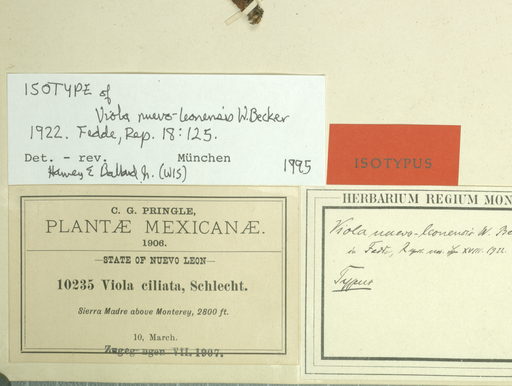 ISOTYPE of
Viola nuevo-leonensis W. Becker
1922. Fedde, Rep. 18:125.
Det. – rev. München 1995
Harvey E Ballard, Jr. (WIS)
ISOTYPUS
C. G. PRINGLE,
PLANTÆ MEXICANÆ.
1906.
—STATE OF NUEVO LEON—
10235 Viola ciliata, Schlecht.
Sierra Madre above Monterey, 2800 ft.
10, March.
Zugegangen VII. 1907.
HERBARIUM REGIUM MON
Viola nuevo-leonensis W. Be
in Fedde, XVIII. 1922
Typus